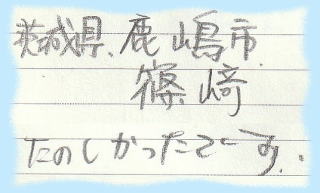 茨城県、鹿嶋市
篠﨑
たのしかったでーす。